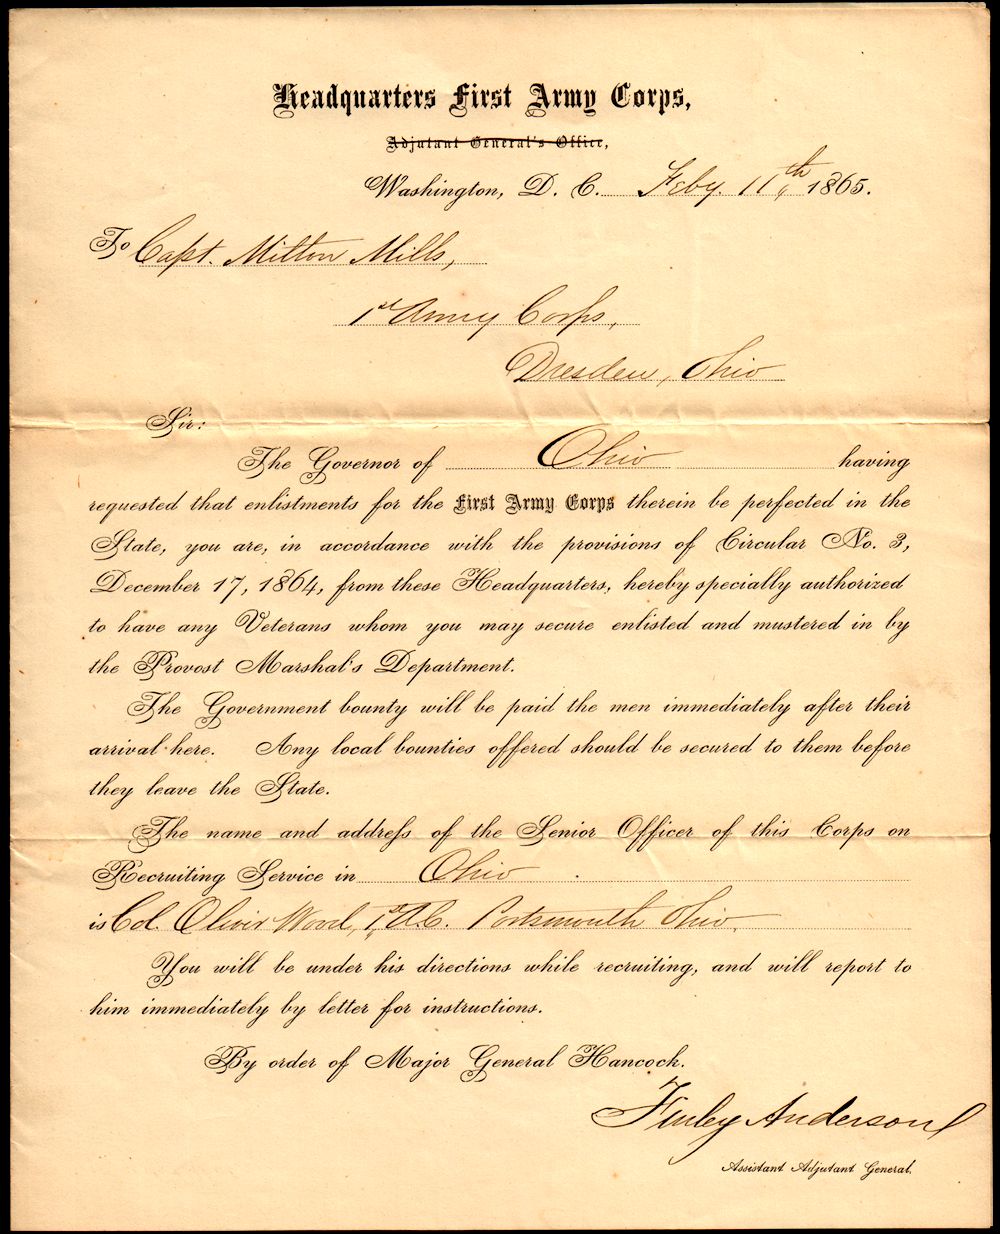 Headquarters First Army Corps,
Adjutant General's Office,
Washington, D. C. Feby. 11th, 1865.
To Capt. Milton Mills,
1st Army Corps,
Dresden, Ohio
Sir:
The Governor of Ohio having
requested that enlistments for the First Army Corps therein be perfected in the
State, you are, in accordance with the provisions of Circular No. 3,
December 17, 1864, from these Headquarters, hereby specially authorized
to have any Veterans whom you may secure enlisted and mustered in by
the Provost Marshal's Department.
The Government bounty will be paid the men immediately after their
arrival here. Any local bounties offered should be secured to them before
they leave the State.
The name and addreſs of the Senior Officer of this Corps on
Recruiting Service in Ohio.
is Col. Oliver Wood, 1st A.C. Portsmouth Ohio.
You will be under his directions while recruiting, and will report to
him immediately by letter for instructions.
By order of Major General Hancock.
Finley Anderson
Assistant Adjutant General.